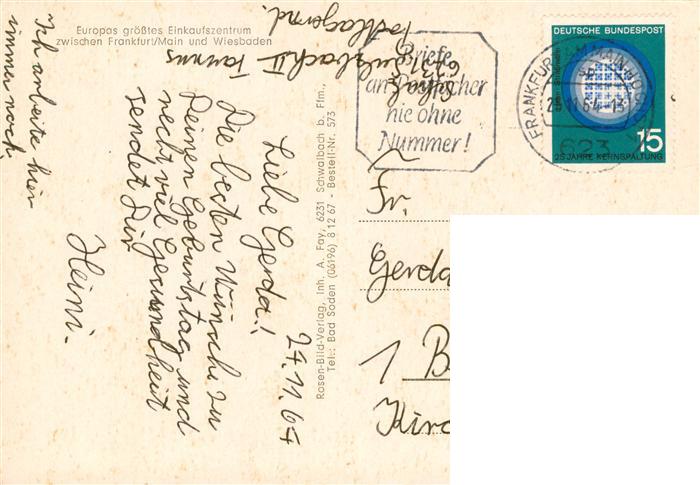 Europas größtes Einkaufszentrum
zwischen Frankfurt/Main und Wiesbaden
Ich arbeite hier
immer noch
postlagernd.
6231 Sulzbach II Taunus
24.11.64
Liebe Gerda!
Die besten Wünsche zu
Deinen Geburtstag und
recht viel Gesundheit
sendet Dir
Heini.
Rosen-Bild-Verlag, Inh. A. Fay, 6231 Schwalbach b. Ffm.,
Tel.: Bad Soden (06196) 8 12 67 - Bestell-Nr. 573
Briefe
an Postfächer
nie ohne
Nummer!
FRANKFURT AM MAIN
11.64
623
DEUTSCHE BUNDESPOST
15
25 JAHRE KERNSPALTUNG
Fr.
Gerda
1 B
Kirc